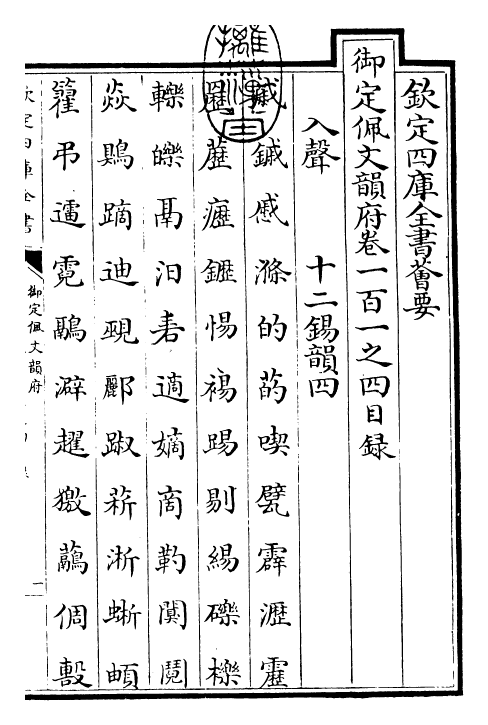 欽定四庫全書薈要
御定佩文韻府卷一百一之四目録
入聲
十二錫韻四
鏚慼滌的菂喫甓霹瀝靂
藶癧䥶惕裼踢剔緆礫櫟
轢皪鬲汨砉適嫡啇靮闃鬩
焱鶪蹢迪覡酈踧菥淅蜥䫌
籊弔逷霓鷊澼趯獥虉倜毄
欽定四庫全書
御定佩文韻府
一